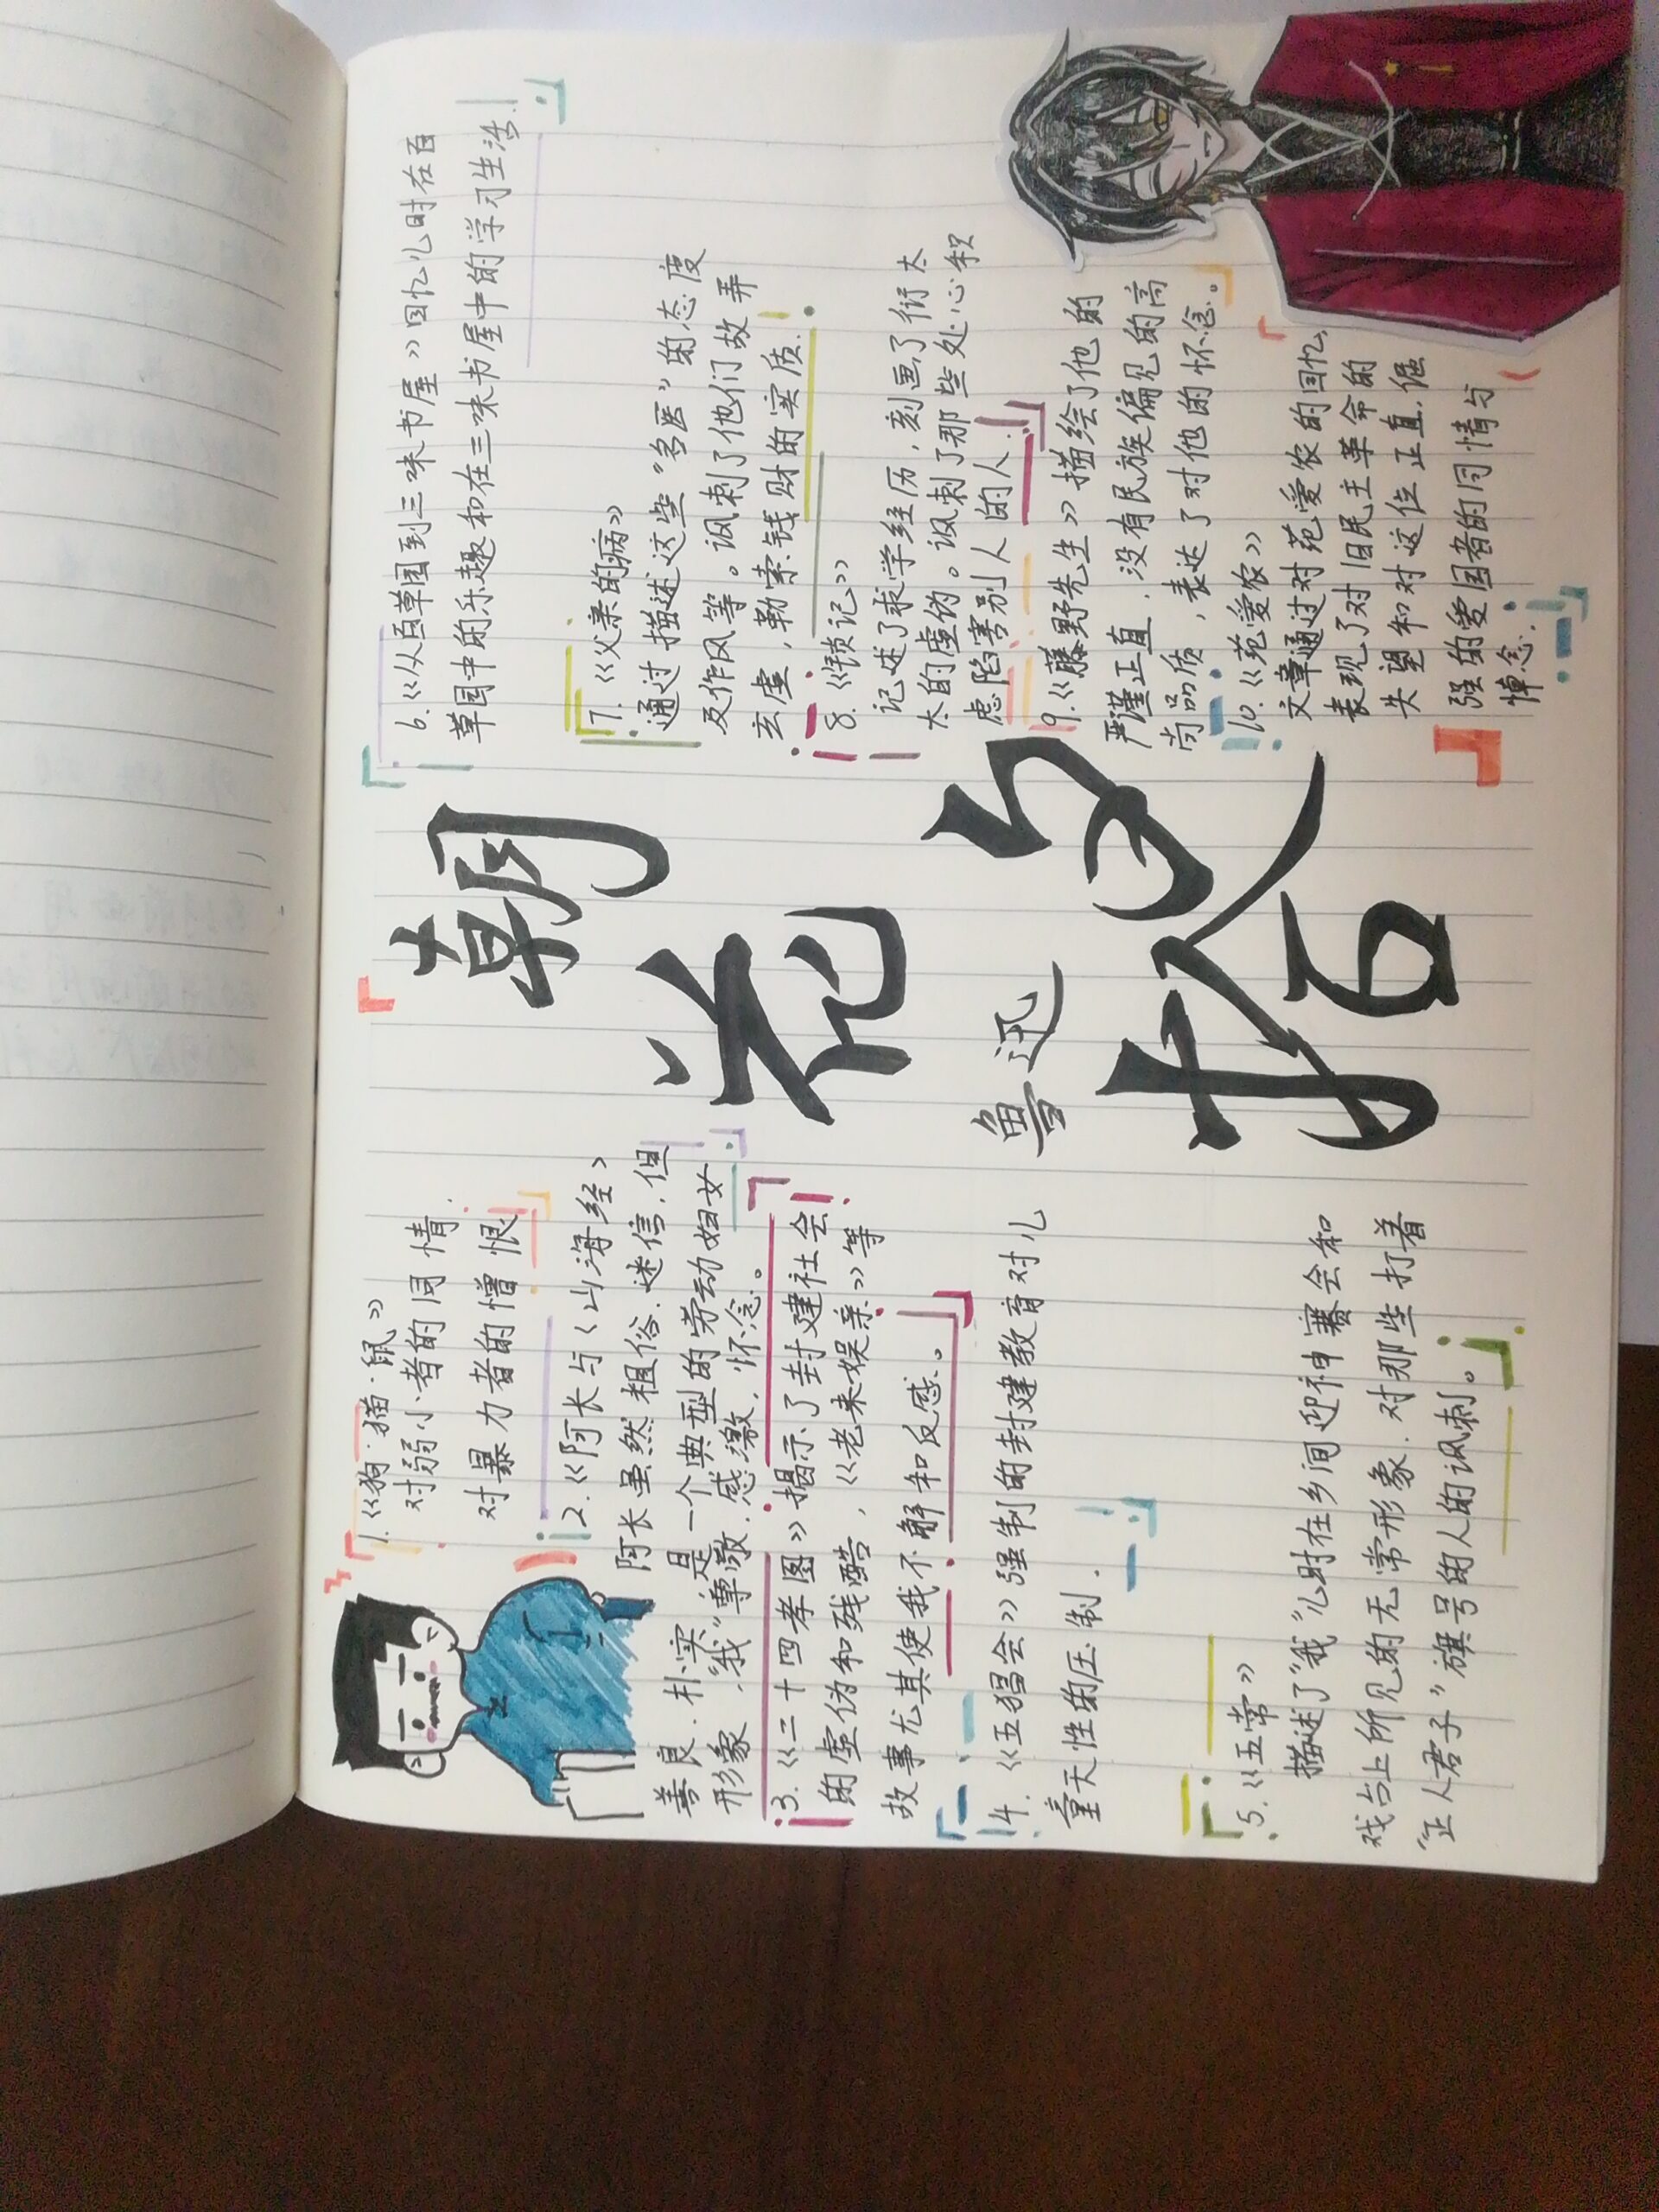 1.《狗·猫·鼠》
对弱小者的同情
对暴力者的憎恨
2.《阿长与〈山海经〉
阿长虽然粗俗.迷信,但
善良.朴实,是一个典型的劳动妇女
形象,"我"尊敬.感激.怀念。
3.《二十四孝图》揭示了封建社会
的虚伪和残酷,《老来娱亲》等
故事尤其使我不解和反感。
4.《五猖会》强制的封建教育对儿
童天性的压制.
5.《五常》
描述了"我"儿时在乡间迎神赛会和
戏台上所见的无常形象.对那些打着
"正人君子"旗号的人的讽刺。
朝
花
夕
拾
鲁迅
6.《从百草园到三味书屋》回忆儿时在百
草园中的乐趣和在三味书屋中的学习生活.
7.《父亲的病》
通过描述这些"名医"的态度
及作风等。讽刺了他们故弄
玄虚,勒索钱财的实质.
8.《锁记》
记述了求学经历,刻画了衍太
太的虚伪。讽刺了那些处心积
虑陷害别人的人.
9.《藤野先生》描绘了他的
严谨正直,没有民族偏见的高
尚品质,表达了对他的怀念。
10.《苑爱农》
文章通过对苑爱农的回忆,
表现了对旧民主革命的
失望和对这位正直.倔
强的爱国者的同情与
悼念.